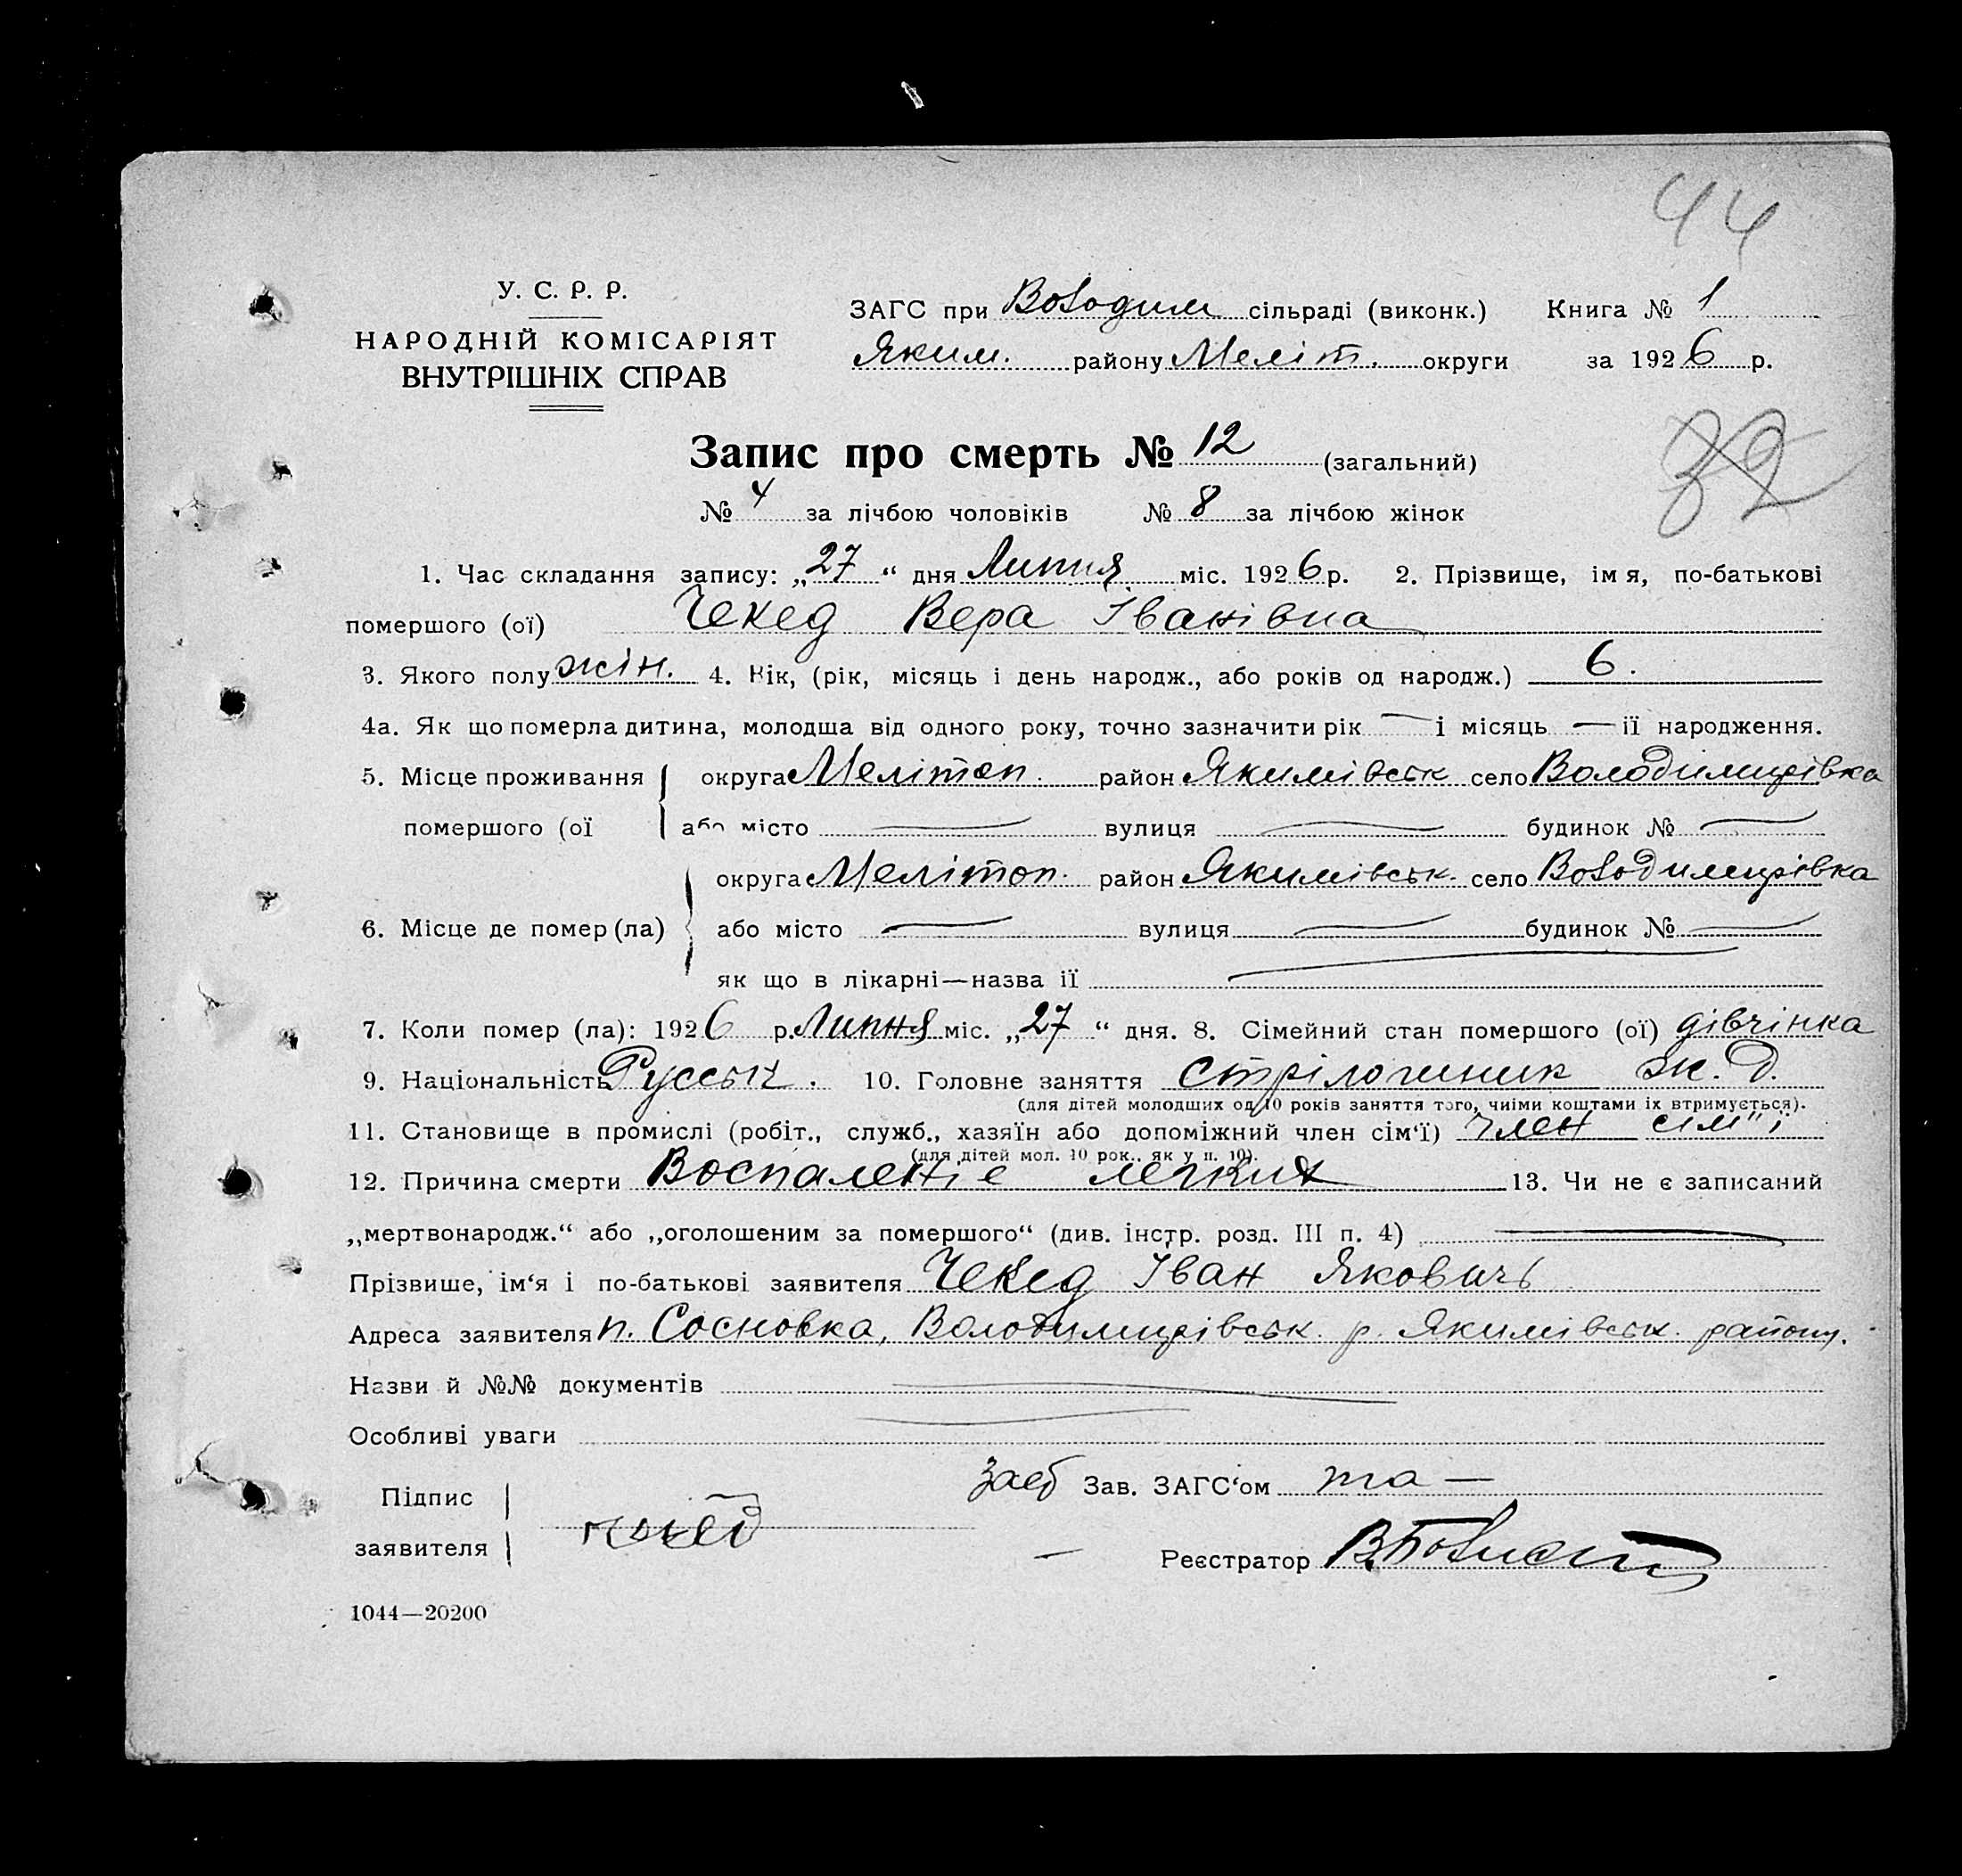 44
У. С. Р. Р.
НАРОДНІЙ КОМІСАРІЯТ
ВНУТРІШНІХ СПРАВ
ЗАГС при Володим сільраді (виконк.) Книга № 1
Яким. району Меліт. округи за 1926 р.
32
Запис про смерть № 12 (загальний)
№ 4 за лічбою чоловіків № 8 за лічбою жінок
1. Час складання запису: „27“ дня Липня міс. 1926 р. 2. Прізвище, імя, по-батькові
помершого (ої) Чекед Вера Іванівна
3. Якого полу жін. 4. Вік, (рік, місяць і день народж., або років од народж.) 6.
4а. Як що померла дитина, молодша від одного року, точно зазначити рік — і місяць — її народження.
5. Місце проживання округа Мелітоп. район Якимівськ село Володимирівка
помершого (ої або місто — вулиця — будинок № —
округа Мелітоп. район Якимівськ. село Володимирівка
6. Місце де помер (ла) або місто — вулиця — будинок № —
як що в лікарні—назва її —
7. Коли помер (ла): 1926 р. Липня міс. „27“ дня. 8. Сімейний стан помершого (ої) дівчінка
9. Національність Русськ. 10. Головне заняття Стрілочник ж. д.
(для дітей молодших од 10 років заняття того, чиіми коштами їх втримується).
11. Становище в промислі (робіт., служб., хазяїн або допоміжний член сім‘ї) член сім"ї
(для дітей мол. 10 рок., як у п. 10).
12. Причина смерти Воспаленіе легких 13. Чи не є записаний
„мертвонародж.“ або „оголошеним за помершого“ (див. інстр. розд. III п. 4) —
Прізвише, ім‘я і по-батькові заявителя Чекед Іван Яковичь
Адреса заявителя п. Сосновка, Володимирівськ. р. Якимівськ. району.
Назви й №№ документів —
Особливі уваги —
Підпис
заявителя
Зав. ЗАГС‘ом та —
— Реєстратор
1044—20200